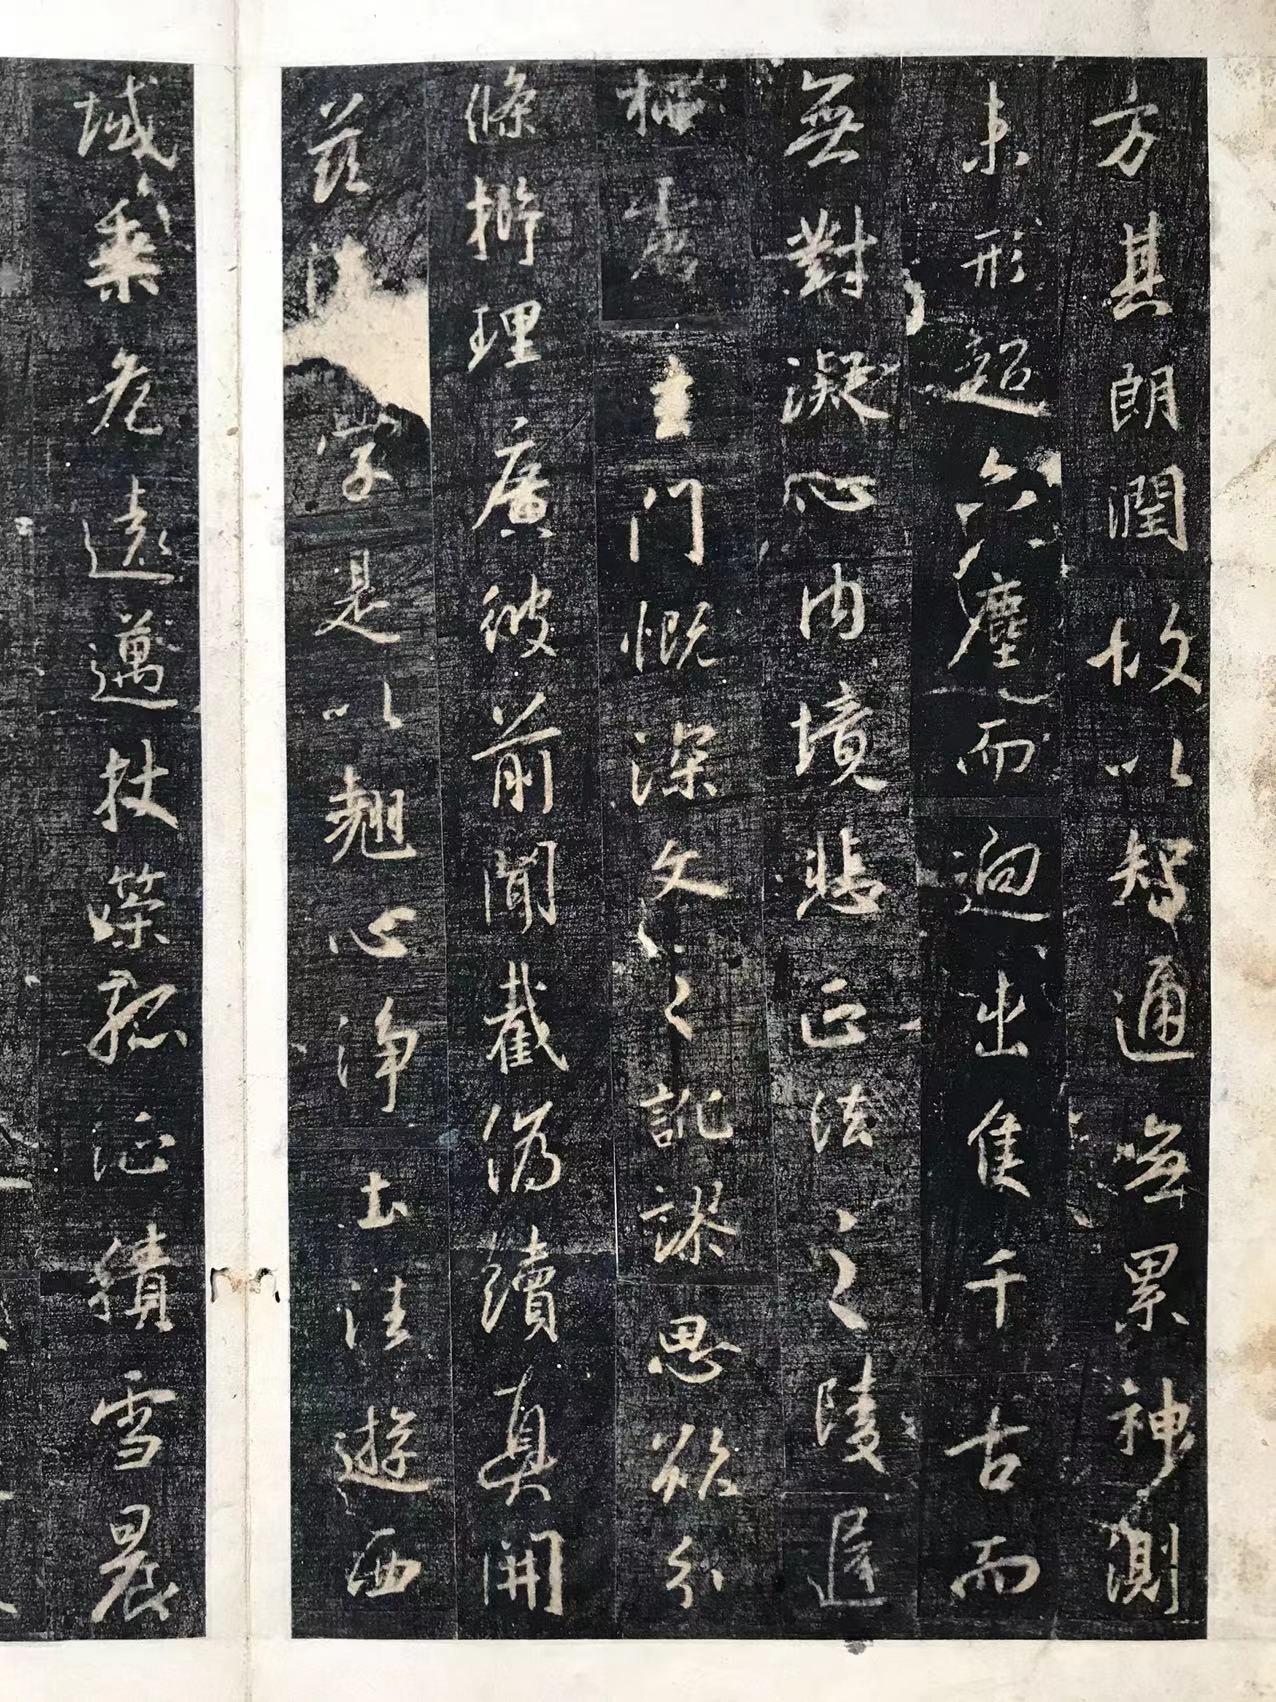 方其朗潤故以智通無累神測
未形超六塵而迥出隻千古而
無對凝心内境悲正法之陵遲
栖慮玄門慨深文之訛謬思欲分
條析理廣彼前聞截偽續真開
茲後學是以翹心淨土往遊西
域乘危遠邁杖策孤征積雪晨